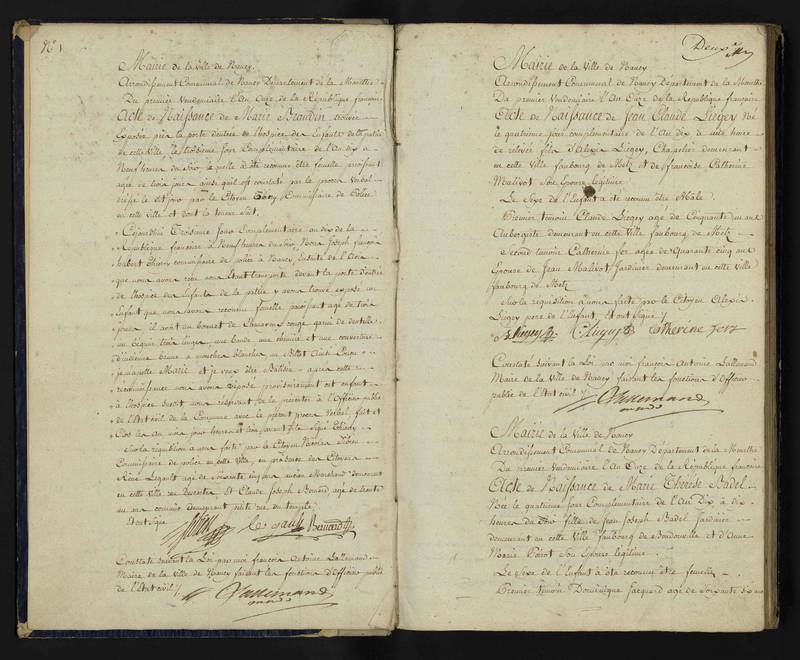 N° 1
Mairie de la Ville de Nancy.
Arrondissement Communal de Nancy Département de la Meurthe
Du premier Vendemiaire l'An Onze de la République françoise
Acte de Naissance de Marie Braudin trouvée
Exposée près la porte d'entrée de l'hospice des Enfants de la patrie
de cette Ville, le troisieme jour Complémentaire de l'An dix à
Neuf heures du soir à quelle d'été reconnu être femelle paroissant
agée de trois jours ainsi qu'il est constaté par le procès Verbal
dressé le dit jour par le Citoyen Commissaire de Police
en cette ville et dont la teneur suit.
Cejourd'hui Troisieme jour Complémentaire an dix de la
République françoise à Neuf heures du soir Nous Joseph françois
hubert Thiery commissaire de police à Nancy
que nous avons transporté devant la porte d'entrée
de l'hospice des Enfants de la patrie y avons trouvé exposé un
Enfant que nous avons reconnu femelle paroissant agé de trois
jours il avoit un bonnet de rouge garni de dentelle
un béguin trois linges une bande une chemise et une couverture
un Billet
je m'appelle Marie et je veux être Batisée après cette
reconnoissance nous avons déposé provisoirement cet enfant
à l'hospice susdit nous réservant de la présenter à l'Officier public
de l'Etat civil de la Commune avec le présent procès Verbal fait et
Clos les an, mois jour heures et lieu avant dits signé Thiery
Sur la requisition à nous faite par le Citoyen Nicolas
Commissaire de police en cette Ville, en présence des Citoyens
René Legault agé de soixante cinq ans
en cette ville rue Et Claude Joseph Bernard, agé de trente
un ans commis demeurant susdite rue du temple
Ont signé
Bernard
Constaté suivant la Loi par moi françois Antoine Lallemand
Maire de la Ville de Nancy faisant les fonctions d'Officier public
de l'Etat civil
Lallemand
Deux
Mairie de la Ville de Nancy
Arrondissement Communal de Nancy Département de la Meurthe
Du premier Vendemiaire l'An Onze de la République françoise
Acte de Naissance de Jean Claude Liegey Né
le quatrieme jour complémentaire de l'An dix à une heure
de relevée fils d'Alexis Liegey, Chapelier demeurant
en cette Ville faubourg de Metz et de françoise Catherine
Malivot Son Epouse légitime
Le Sexe de l'Enfant a été reconnu être Mâle.
Premier témoin Claude Liegey agé de Cinquante deux ans
Aubergiste demeurant en cette ville faubourg de Metz
Second témoin Catherine for agée de Quarante cinq ans
Epouse de Jean Malivot Jardinier demeurant en cette Ville
faubourg de Metz
Sur la requisition à nous faite par le Citoyen Alexis
Liegey pere de l'Enfant, Et ont signé
A Liegey C Liegey Catherine forz
Constaté suivant la Loi par moi françois Antoine Lallemand
Maire de la Ville de Nancy faisant les fonctions d'Officier
public de l'Etat civil
Lallemand
Mairie de la Ville de Nancy
Arrondissement Communal de Nancy Département de la Meurthe
Du premier Vendemiaire l'An Onze de la République françoise
Acte de Naissance de Marie Thérèse Badel
Née le quatrieme jour Complémentaire de l'An Dix à dix
heures du soir fille de Jean Joseph Badel Jardinier
demeurant en cette Ville faubourg de Boudonville et d'Anne
Marie Poirot Son Epouse légitime
Le Sexe de l'Enfant a été reconnu être femelle
Premier témoin Dominique Jacquard agé de Soixante dix ans